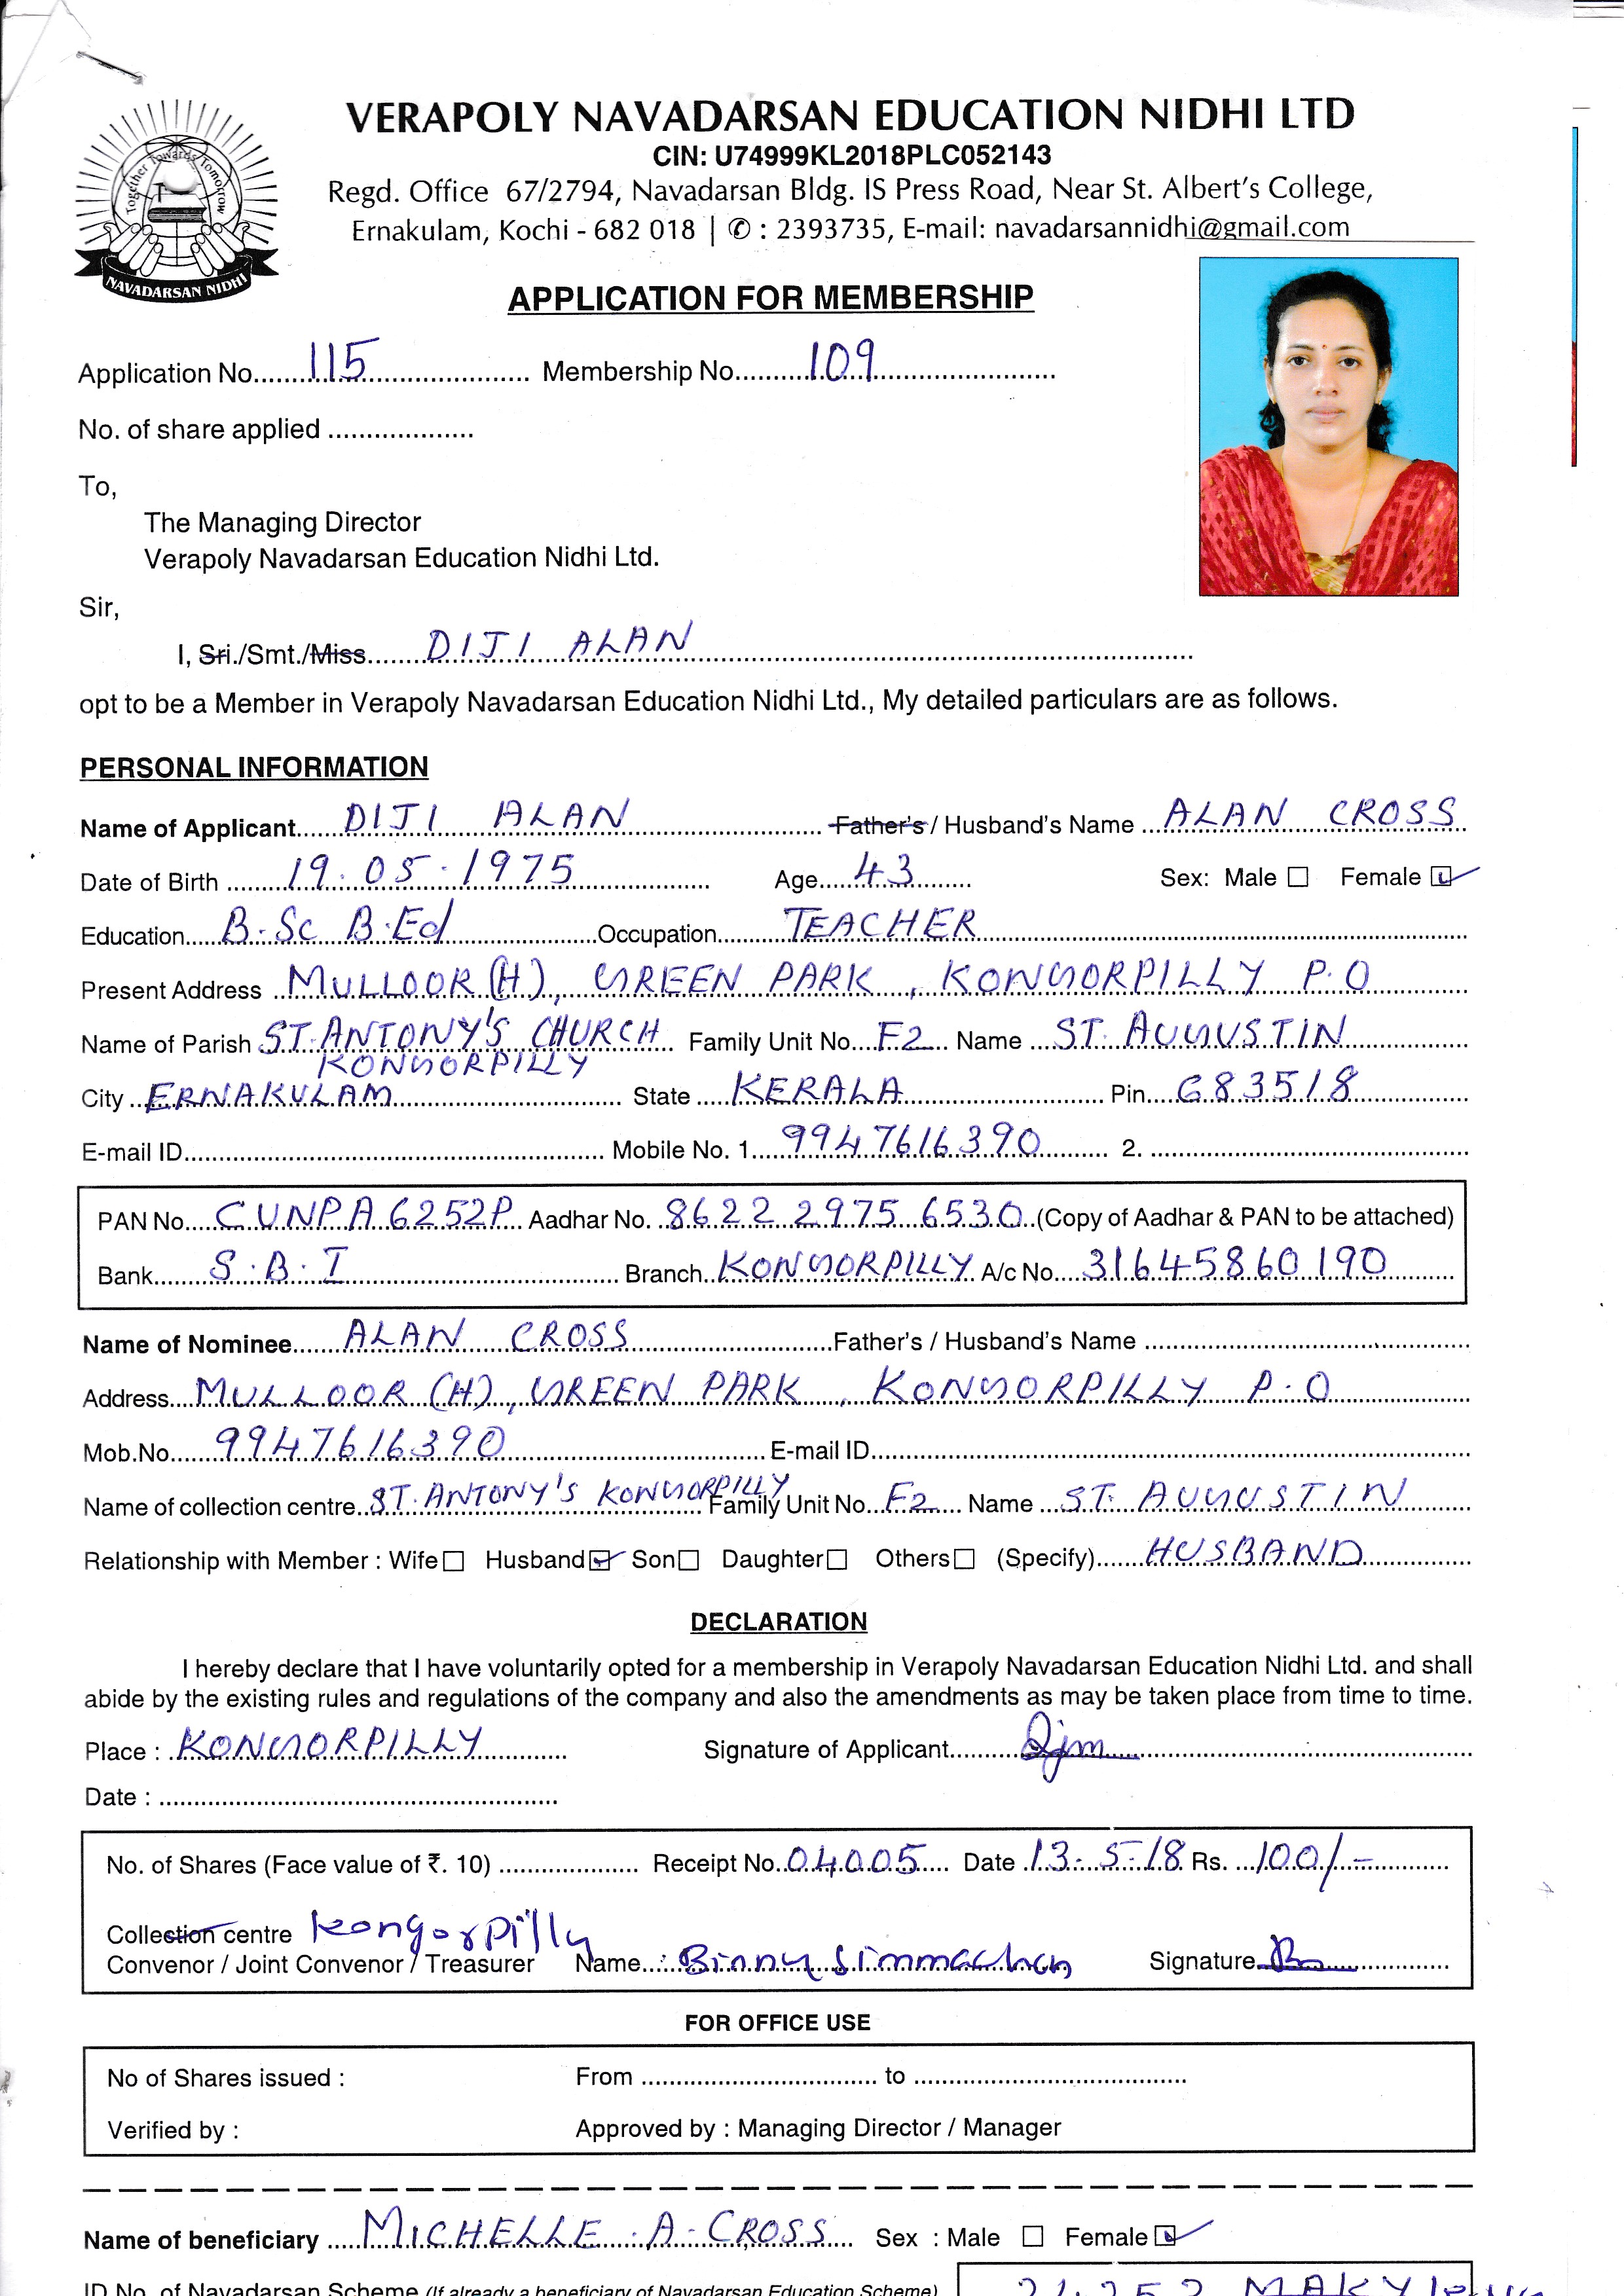 VERAPOLY NAVADARSAN EDUCATION NIDHI LTD
CIN: U74999KL2018PLC052143
Regd. Office 67/2794, Navadarsan Bldg. IS Press Road, Near St. Albert's College,
Ernakulam, Kochi - 682 018 | ✆ : 2393735, E-mail: navadarsannidhi@gmail.com
Together Towards Tomorrow
NAVADARSAN NIDHI
APPLICATION FOR MEMBERSHIP
Application No. 115 Membership No. 109
No. of share applied
To,
The Managing Director
Verapoly Navadarsan Education Nidhi Ltd.
Sir,
I, Sri./Smt./Miss DIJI ALAN
opt to be a Member in Verapoly Navadarsan Education Nidhi Ltd., My detailed particulars are as follows.
PERSONAL INFORMATION
Name of Applicant DIJI ALAN Father's / Husband's Name ALAN CROSS
Date of Birth 19.05.1975 Age 43 Sex: Male Female
Education B.Sc B.Ed Occupation TEACHER
Present Address MULLOOR (H), GREEN PARK, KONGORPILLY P.O
Name of Parish ST. ANTONY'S CHURCH Family Unit No. F2 Name ST. AUGUSTIN
KONGORPILLY
City ERNAKULAM State KERALA Pin 683518
E-mail ID Mobile No. 1 9947616390 2.
PAN No. CUNPA6252P Aadhar No. 8622 2975 6530 (Copy of Aadhar & PAN to be attached)
Bank S.B.I Branch KONGORPILLY A/c No. 31645860190
Name of Nominee ALAN CROSS Father's / Husband's Name
Address MULLOOR (H), GREEN PARK, KONGORPILLY P.O
Mob.No. 9947616390 E-mail ID
Name of collection centre ST. ANTONY'S KONGORPILLY Family Unit No. F2 Name ST. AUGUSTIN
Relationship with Member : Wife Husband Son Daughter Others (Specify) HUSBAND
DECLARATION
I hereby declare that I have voluntarily opted for a membership in Verapoly Navadarsan Education Nidhi Ltd. and shall
abide by the existing rules and regulations of the company and also the amendments as may be taken place from time to time.
Place : KONGORPILLY Signature of Applicant
Date :
No. of Shares (Face value of ₹. 10) Receipt No. 04005 Date 13-5-18 Rs. 100/-
Collection centre Kongorpilly
Convenor / Joint Convenor / Treasurer Name : Binny Signature
FOR OFFICE USE
No of Shares issued : From to
Verified by : Approved by : Managing Director / Manager
Name of beneficiary MICHELLE A. CROSS Sex : Male Female
ID No. of Navadarsan Scheme (If already a beneficiary of Navadarsan Education Scheme)